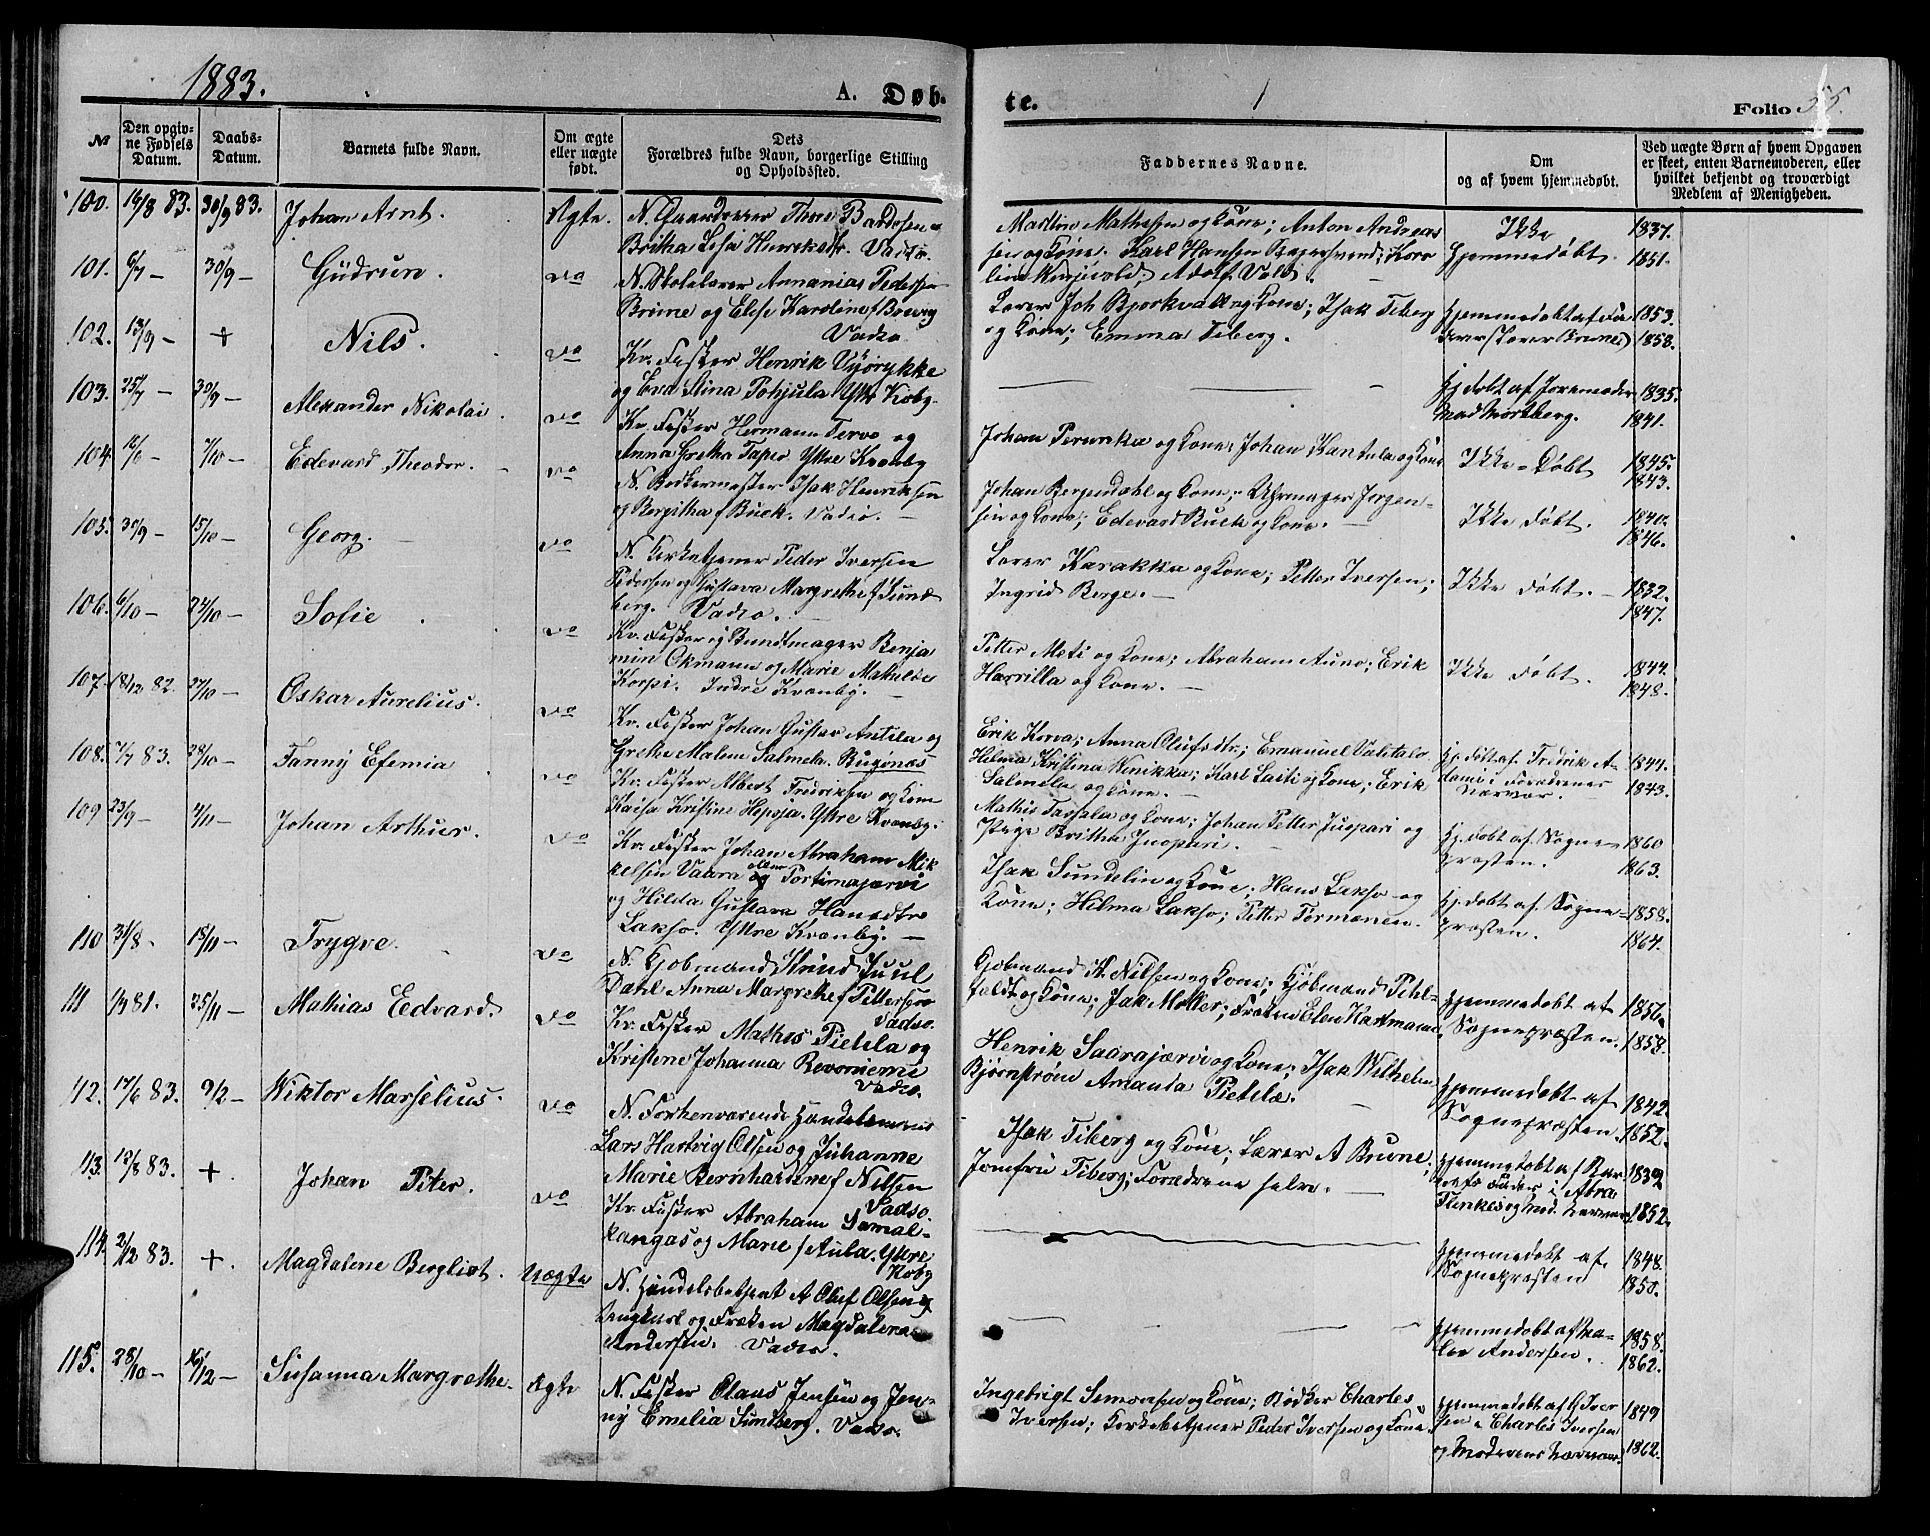 1883.
A. Døb-
te.
Folio 55.
№
Den opgivne Fødsels Datum.
Daabs-Datum.
Barnets fulde Navn.
Om ægte eller uægte født.
Dets Forældres fulde Navn, borgerlige Stilling og Opholdssted.
Faddernes Navne.
Om og af hvem hjemmedøbt.
Ved uægte Børn af hvem Opgaven er skeet, enten Barnemoderen, eller hvilket bekjendt og troværdigt Medlem af Menigheden.
100. 16/8 83. 30/9 83. Johan Arnt. Ægte.
Britha Lisa Henriksdtr. Vadsø.
Mathisen og Kone; Anton Andreas
sen og Kone. Karl Hansen Bagersvend; Karo
Adolf Vold.
Ikke
Hjemmedøbt.
1837.
1851.
101. 6/7 – 30/9 – Gudrun. do
N. Skolelærer Annanias Pedersen
Brune og Elise Karoline f Brevig
Vadsø
Lærer Joh Bjorkvall og Kone; Isak Tiberg
og Kone; Emma Tiberg.
Hjemmedøbt af Fa
deren (Lærer Brune)
1853.
1858.
102. 13/9 – + Nils. do
Kv. Fisker Henrik Vyörykke
og Eva Stina Pohjula Yttre Kvbg.
Hj. døbt af Joremoder
Mad Mortberg.
1835.
1841.
103. 25/7 – 30/9 – Alexander Nikolai. do
Kv. Fisker Hermann Tervo og
Anna Gretha Tapio Yttre Kvænby
Johan Perunka og Kone; Johan Kantola og Kone
Ikke – Døbt
1845.
1843.
104. 16/6 7/10 – Edevard Theodor. do
N. Bødkermester Isak Henriksen
og Bergitha f Buck. Vadsø. –
Johan Bergendahl og Kone; Uhrmager Jørgen-
sen og Kone; Edevard Buck og Kone. –
Ikke døbt.
1840.
1846.
105. 30/9 – 15/10 – Georg. – do
N. Kirketjener Peder Iversen
Pedersen og Gustava Margrethe f Sund
berg. Vadsø. –
Lærer Karakka og Kone; Petter Iversen;
Ingrid Berge. –
Ikke døbt. –
1832.
1847.
106. 6/10 – 24/10 – Sofie. do
Kv. Fisker og Bundtmager Benja
min Okmann og Marie Mathilde
Korpi. Indre Kvænby. –
Petter Meti og Kone; Abraham Auno; Erik
Harrilla og Kone. –
Ikke døbt.
1844.
1848.
107. 18/12 82. 27/10 – Oskar Aurelius. do
Kv. Fisker Johan Gustav Antila og
Grethe Malene Salmela. Bugønæs
Erik Korva; Anna Olufsdtr; Emanuel Valitalo
Hilma Kristina Winikka; Karl Laiti og Kone; Erik
Salmela og Kone. –
Hj. døbt af Fredrik A-
dams i Forældrenes
Nærvær.
1844.
1843.
108. 7/7 83. 28/10 – Fanny Efemia. do
Kv. Fisker Albert Fredriksen og Kone
Kaisa Kristine Heposa. Yttre Kvænby.
Mathis Tarsala og Kone; Johan Petter Juopari og
Pige Britha Juopari. –
Hj. døbt af Sogne-
præsten.
1860
1863.
109 23/9 – 4/11 – Johan Arthur. do
Kv. Fisker Johan Abraham Mik
kelsen Vaara eller Tortimajærvi
og Hilda Gustava Hansdtr
Lakso. Yttre Kvænby. –
Isak Sundelin og Kone; Hans Lakso og
Kone; Hilma Lakso; Petter Tormanen.
Hj. døbt af Sogne-
præsten.
1858.
1864.
110 31/8 – 18/11 – Trygve. do
N. Kjøbmand Strand Juul
Dahl Anna Margrethe f Pettersen
Vadsø.
Kjøbmand H. Nilsen og Kone; Kjøbmand Pihl-
feldt og Kone; Jak Møller; Frøken Elen Kartmann.
Hjemmedøbt af
Sognepræsten.
1856.
1858.
111 1/9 81. 25/11 – Mathias Edvard. do
Kv. Fisker Mathis Pietela og
Kristine Johanna Revoniemi
Vadsø.
Henrik Saarajærvi og Kone; Isak Wilhelm
Bjørnstrøm Amanda Pietilæ. –
Hjemmedøbt af
Sognepræsten.
1842.
1852.
112. 17/6 83. 9/12 – Wiktor Marselius. do
N. Forhenværende Handelsmand
Lars Hartvig Olsen og Juhanne
Marie Bernhardine f Nilsen
Vadsø.
Isak Tiberg og Kone; Lærer A Brune;
Jomfru Tiberg; Forældrene selv. –
Hjemmedøbt af Bar
nets Fader i Abra
Flinkes og Mod. Nærvær.
1832
1852.
113. 12/8 83. + Johan Peter. do
Kv. Fisker Abraham Samal-
kangas og Marie f Aula. Yttre
Kvbg
Hjemmedøbt af
Sognepræsten
1848.
1850.
114. 2/12 83. + Magdalene Bergliot. Uægte
N. Handelsbetjent A Oluf Olsen
Ungkarl og Frøken Magdalena
Andersen. Vadsø.
Hjemmedøbt af Ma-
ler Andersen.
1858.
1862.
115. 28/10 – 16/12 – Susanna Margrethe. Ægte
N. Fisker Claus Jensen og Jen-
ny Emelia Sundberg. Vadsø.
Ingebrigt Simonsen og Kone; Bødker Charles
Iversen; Kirkebetjener Peder Iversen og Kone.
Hjemmedøbt af G Iver
sen, Charles Iversen
og Moderens Nærvær.
1849
1862.